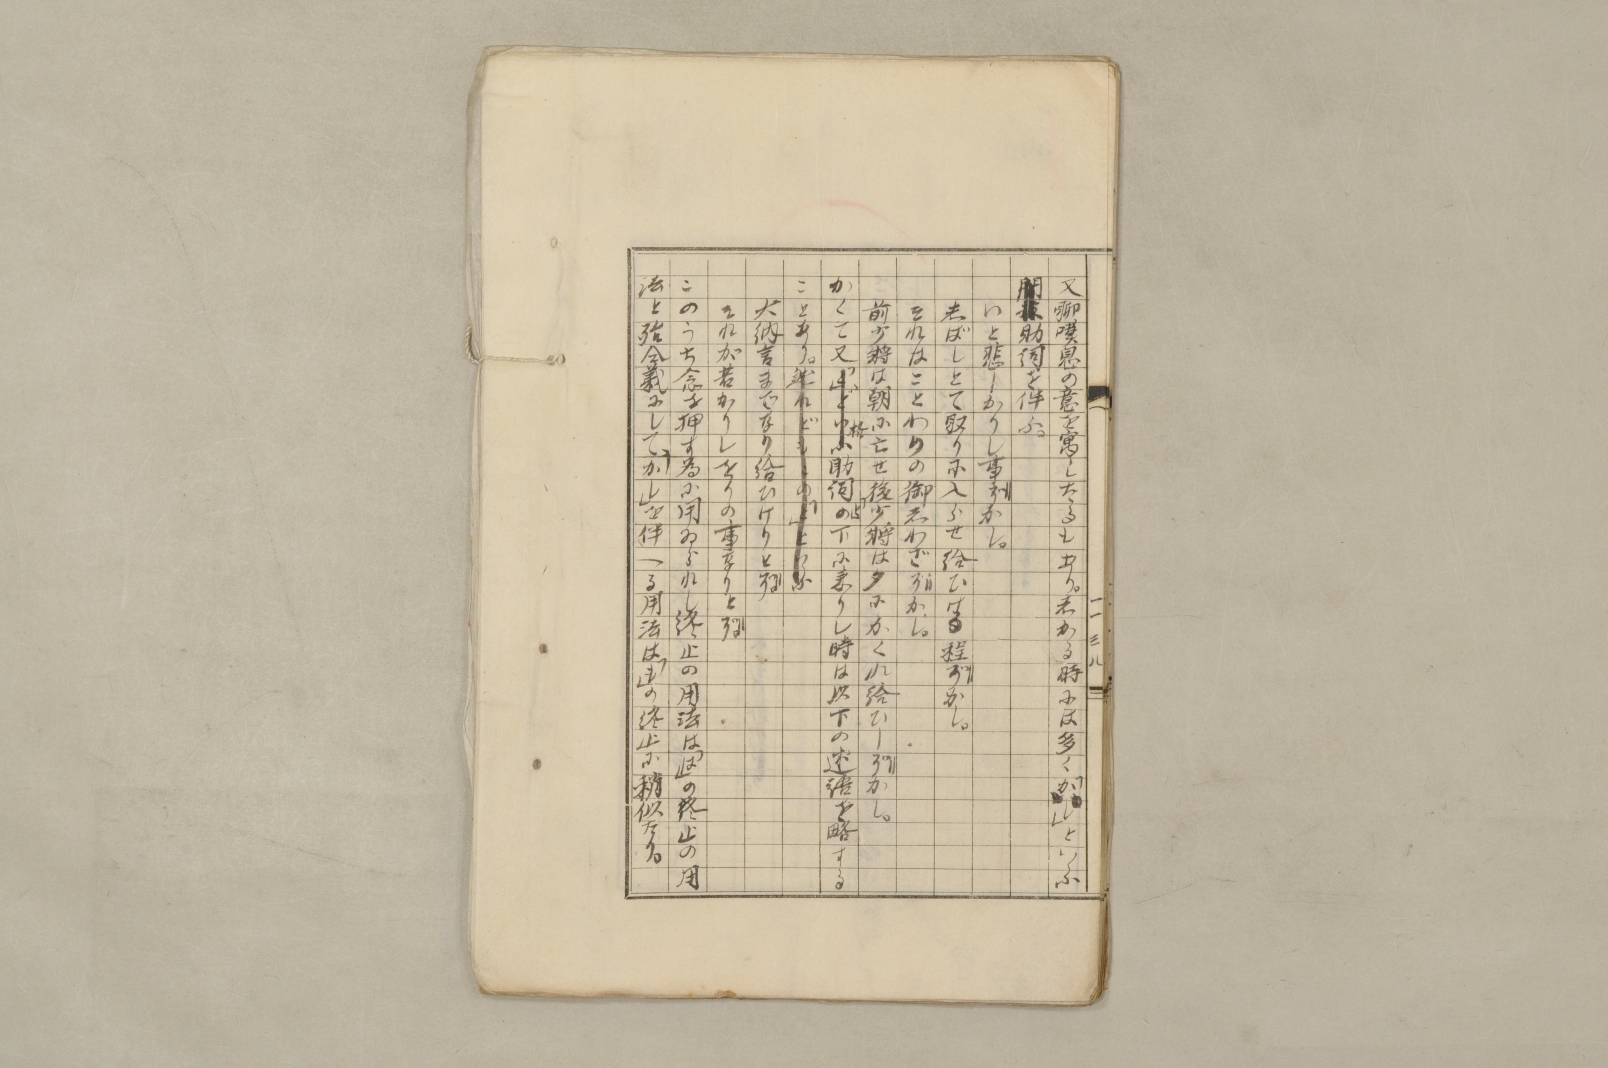 又聊嘆息の意を寓したるもあり。志かる時には多く「かし」といふ
助詞を伴ふ。
いと悲しかりし事ぞかし。
志ばしとて取り入らせ給ひける程ぞかし。
それはことわりの御志わざぞかし。
前少将は朝に亡せ後少将は夕にかくれ給ひしぞかし。
かくて又格助詞の「と」の下に来りし時は以下の述語を略する
ことあり。
大納言までなり給ひけりとぞ
それが若かりしをりの事なりとぞ
このうち念を押す為に用ゐられし終止の用法は「は」の終止の用
法と殆全義にして、「かし」を伴へる用法は「も」の終止に稍似たり。
一一三八